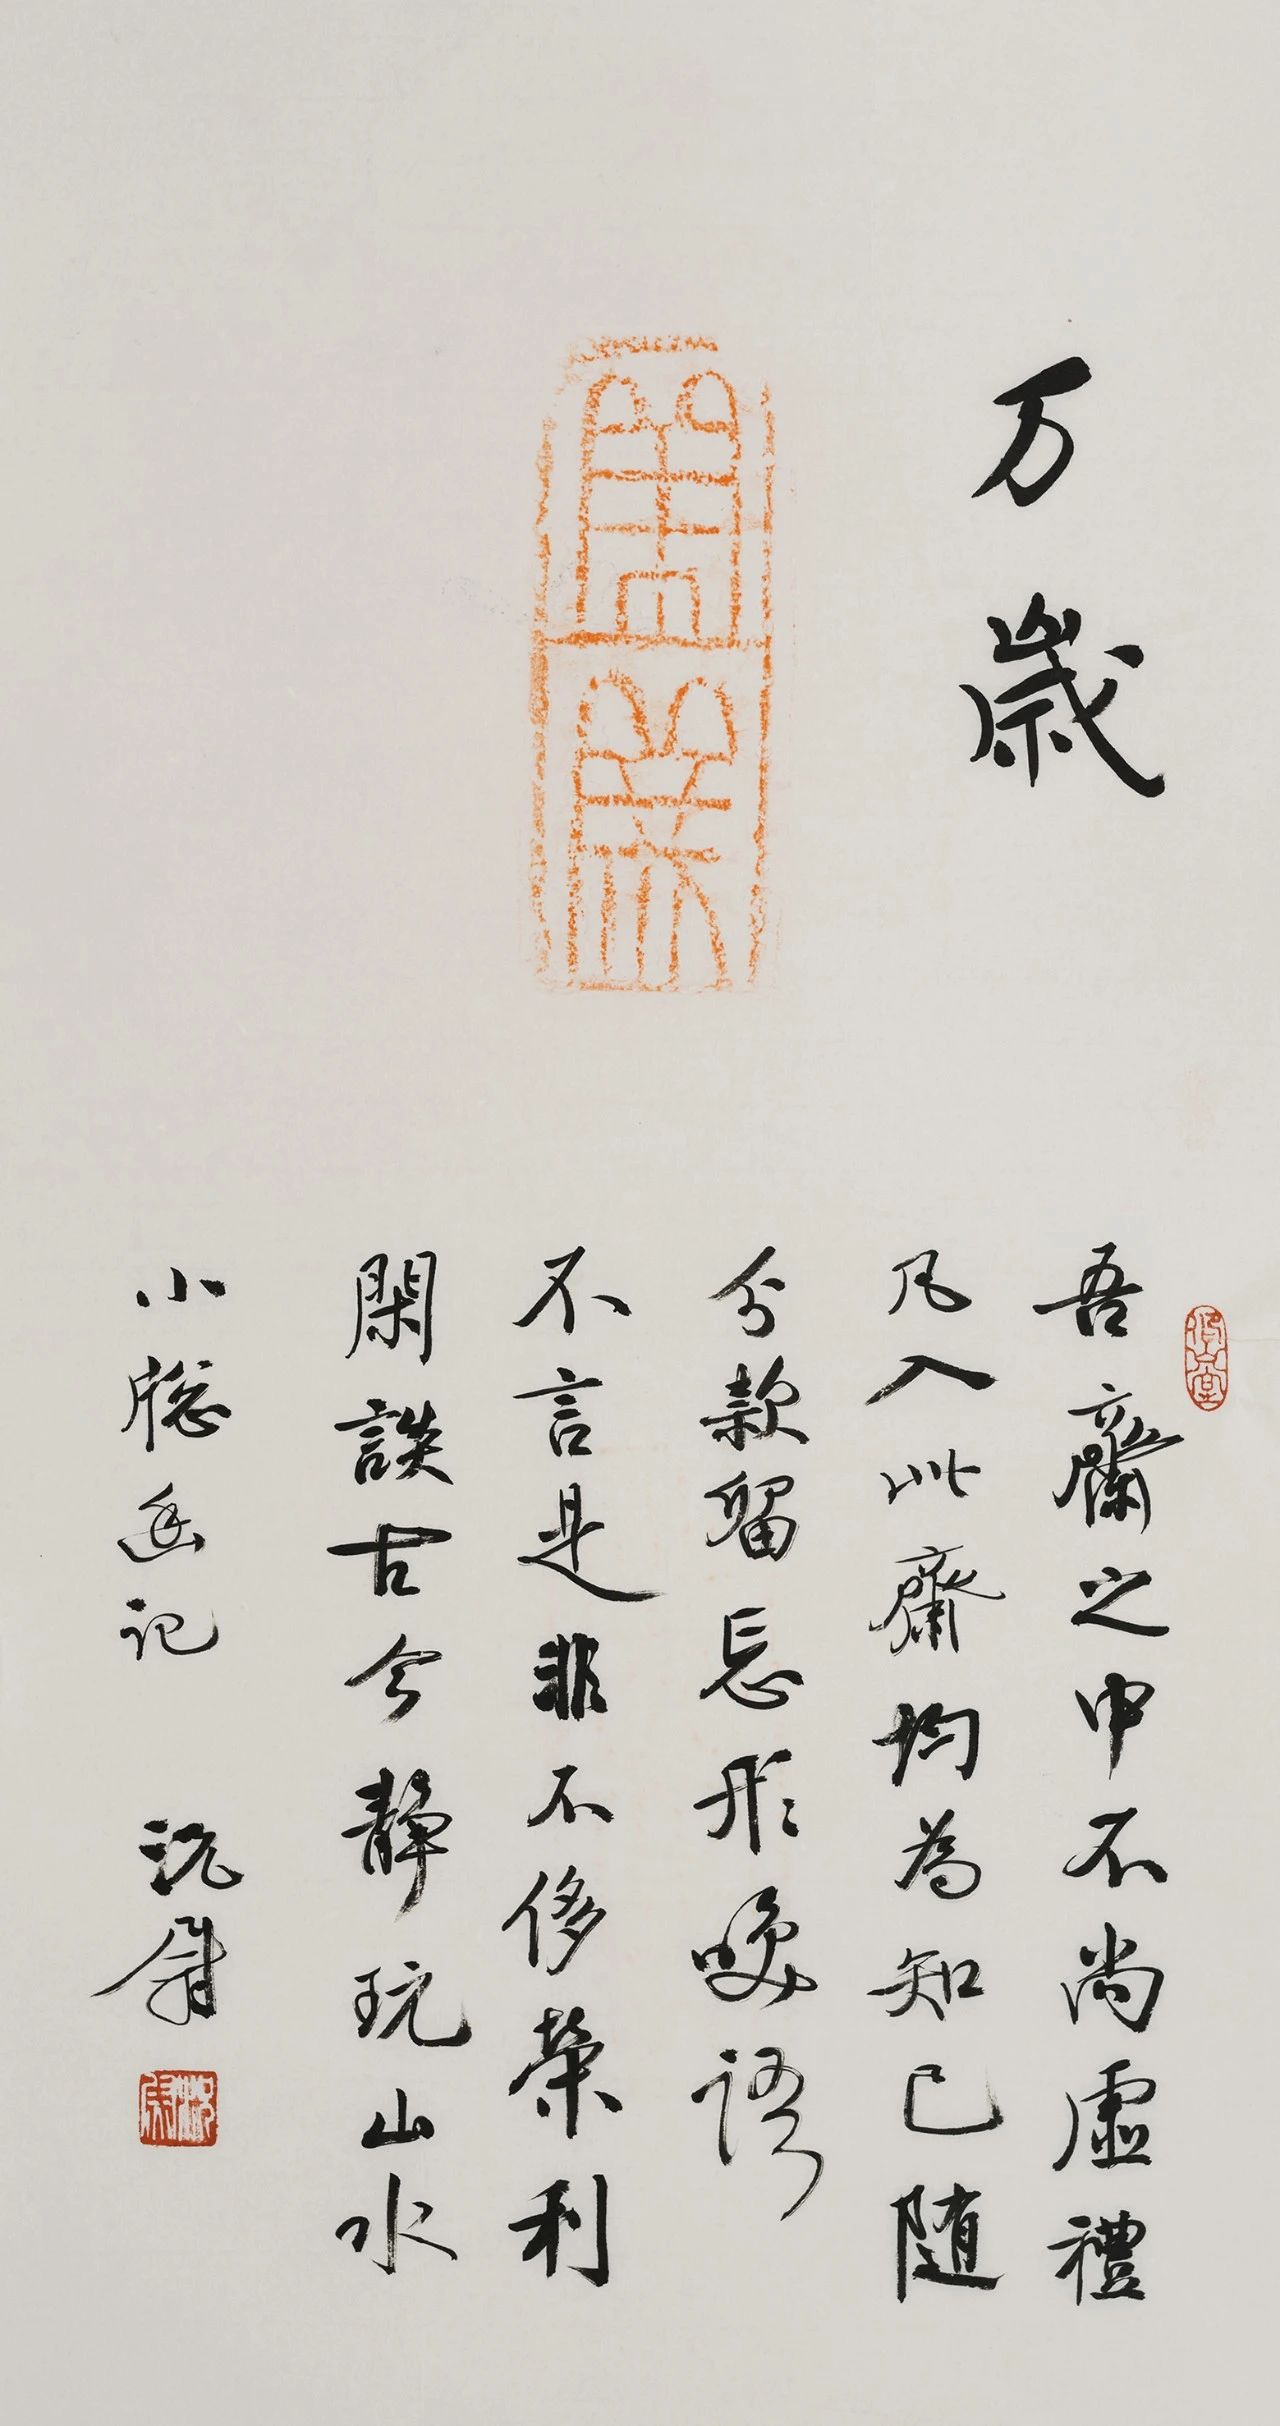 万歲
吾齋之中不尚虛禮
凡入此齋均為知己随
分款留忘形笑語
不言是非不侈榮利
閑談古今靜玩山水
小窓幽记